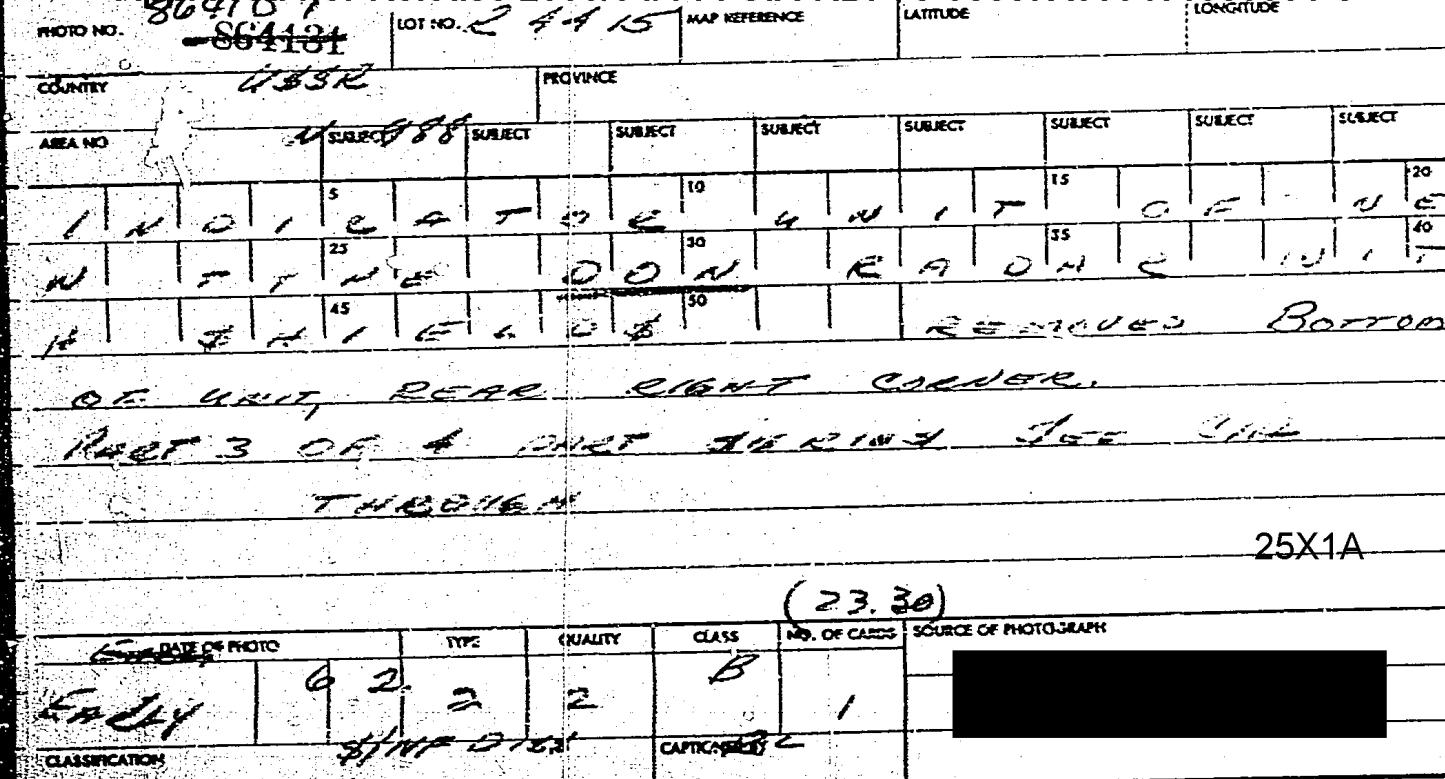 PHOTO NO. 864181 LOT NO. 24415 MAP REFERENCE LATITUDE LONGITUDE
864131
COUNTRY USSR PROVINCE
AREA NO SUBJECT SUBJECT SUBJECT SUBJECT SUBJECT SUBJECT SUBJECT SUBJECT
5 10 15 20
INDICATOR UNIT OF NE
25 30 35 40
W DON
45 50
H SHIELDS REMOVED BOTTOM
OF UNIT, REAR RIGHT CORNER.
PART 3 OF 4 PART SERIES SEE
THROUGH
25X1A
(23.30)
DATE OF PHOTO TYPE QUALITY CLASS NO. OF CARDS SOURCE OF PHOTOGRAPH
EARLY 62 2 2 B 1
CLASSIFICATION S/NF DISH CAPTION BY